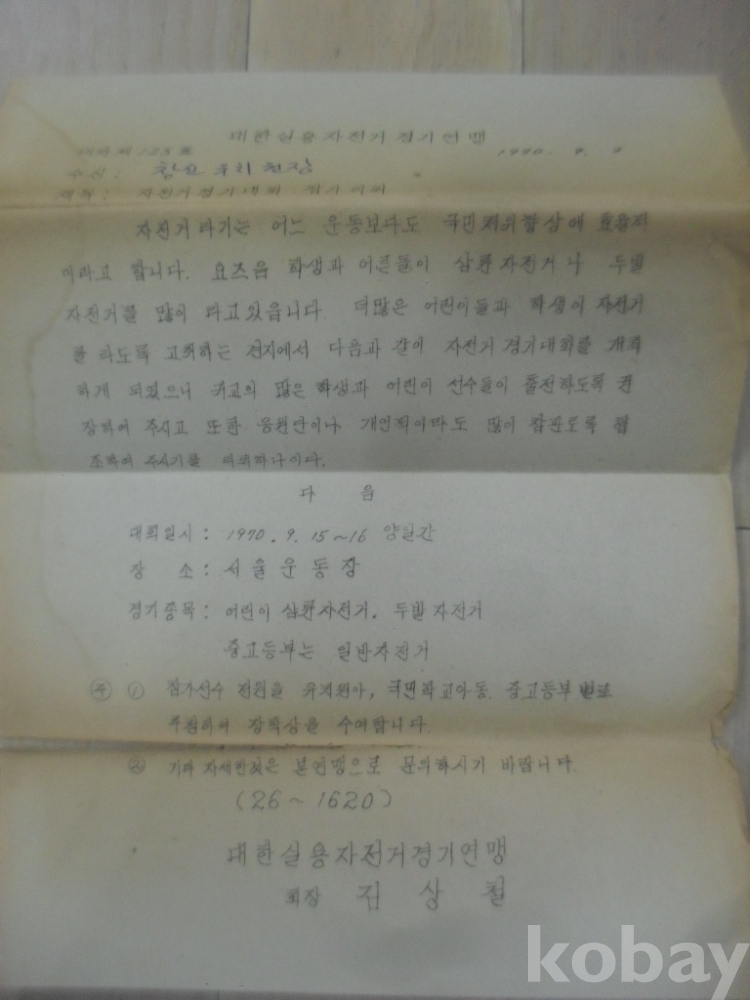 대한실용자전거경기연맹
제125호 1970. 9. 7
수신:
제목: 자전거경기대회
자전거타기는 어느 운동보다도 국민체위향상에 효율적
이라고 합니다. 요즈음 학생과 어른들이 삼륜자전거나 두발
자전거를 많이 타고있읍니다. 더많은 어린이들과 학생이 자전거
를 타도록 고취하는 견지에서 다음과 같이 자전거 경기대회를 개최
하게 되였으니 귀교의 많은 학생과 어린이 선수들이 출전하도록 권
장하여 주시고 또한 응원단이나 개인적이라도 많이 참관토록 협
조하여 주시기를 의뢰하나이다.
다 음
대회일시: 1970. 9. 15~16 양일간
장 소: 서울운동장
경기종목: 어린이 삼륜자전거, 두발자전거
중고등부는 일반자전거
주 ① 참가선수 전원을 유치원아, 국민학교아동, 중고등부 별로
추첨하여 장학상을 수여합니다.
② 기타 자세한것은 본연맹으로 문의하시기 바랍니다.
(26~1620)
대한실용자전거경기연맹
회장 김상철
kobay